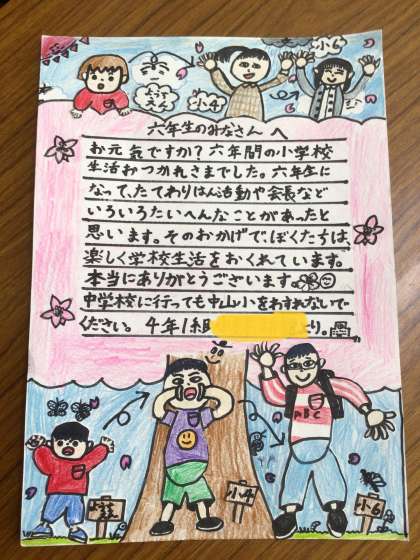 小4
六年生のみなさんへ
お元気ですか?六年間の小学校
生活おつかれさまでした。六年生に
なって、たてわりはん活動や会長など
いろいろたいへんなことがあったと
思います。そのおかげで、ぼくたちは、
楽しく学校生活をおくれています。
本当にありがとうございます。
中学校に行っても中山小をわすれないで
ください。4年1組 より。
ABC
小4
小6